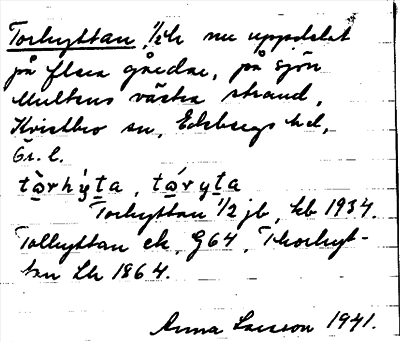 Torhyttan, 1/2 h nu uppdelat
på flera gårdar, på sjön
Multens västra strand,
Kvistbro sn, Edsbergs hd,
Ör. l.
tòrhýta, tóryta
Torhyttan 1/2 jb, kb 1934.
Tolhyttan ek, G64, Thorhyt-
tan Lk 1864.
Anna Larsson 1941.